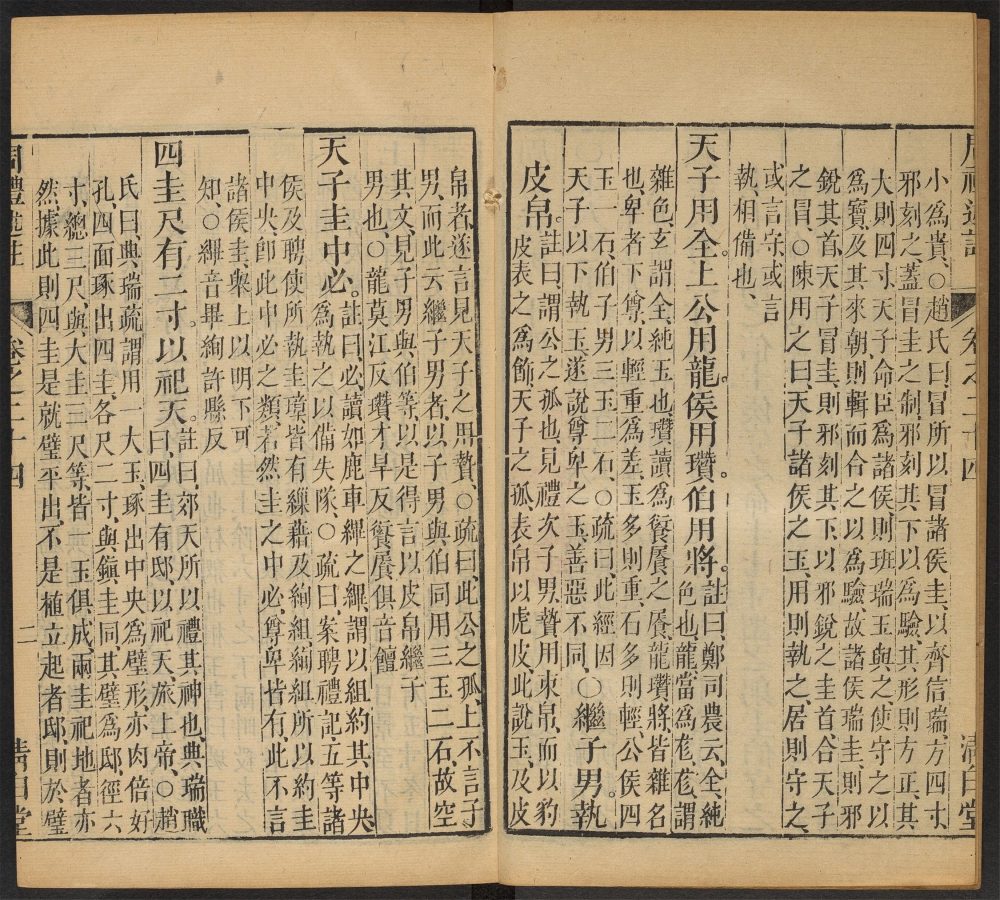 周禮述註 卷之二十四 清白堂
小為貴○趙氏曰冒所以冒諸侯圭以齊信瑞方四寸
邪刻之蓋冒圭之制邪刻其下以為驗其形則方正其
大則四寸天子命臣為諸侯則班瑞玉與之使守之以
為寶及其來朝則輯而合之以為驗故諸侯瑞圭則邪
銳其首天子冒圭則邪刻其下以邪銳之圭首合天子
之冒○陳用之曰天子諸侯之玉用則執之居則守之
或言守或言
執相備也
天子用全上公用龍侯用瓚伯用將註曰鄭司農云全純
色也龍當為尨尨謂
雜色玄謂全純玉也瓚讀為餐𩞂之𩞂龍瓚將皆雜名
也卑者下尊以輕重為差玉多則重石多則輕公侯四
玉一石伯子男三玉二石○疏曰此經因
天子以下執玉遂說尊卑之玉善惡不同○繼子男執
皮帛註曰謂公之孤也見禮次子男贄用束帛而以豹
皮表之為飾天子之孤表帛以虎皮此說玉及皮
帛者遂言見天子之用贄○疏曰此公之孤上不言子
男而此云繼子男者以子男與伯同用三玉二石故空
其文見子男與伯等以是得言以皮帛繼子
男也○龍莫江反瓚才旱反餐𩞂俱音儹
天子圭中必註曰必讀如鹿車縪之縪謂以組約其中央
為執之以備失隊○疏曰案聘禮記五等諸
侯及聘使所執圭璋皆有繅藉及絢組絢組所以約圭
中央卽此中必之類若然圭之中必尊卑皆有此不言
諸侯圭舉上以明下可
知○縪音畢絢許縣反
四圭尺有二寸以祀天註曰郊天所以禮其神也典瑞職
曰四圭有邸以祀天旅上帝○趙
氏曰典瑞疏謂用一大玉琢出中央為璧形亦肉倍好
孔四面琢出四圭各尺二寸與鎭圭同其璧為邸徑六
寸總三尺與大圭三尺等皆一玉俱成兩圭祀地者亦
然據此則四圭是就璧平出不是植立起者邸則於璧
周禮述註 卷之二十四 二 清白堂